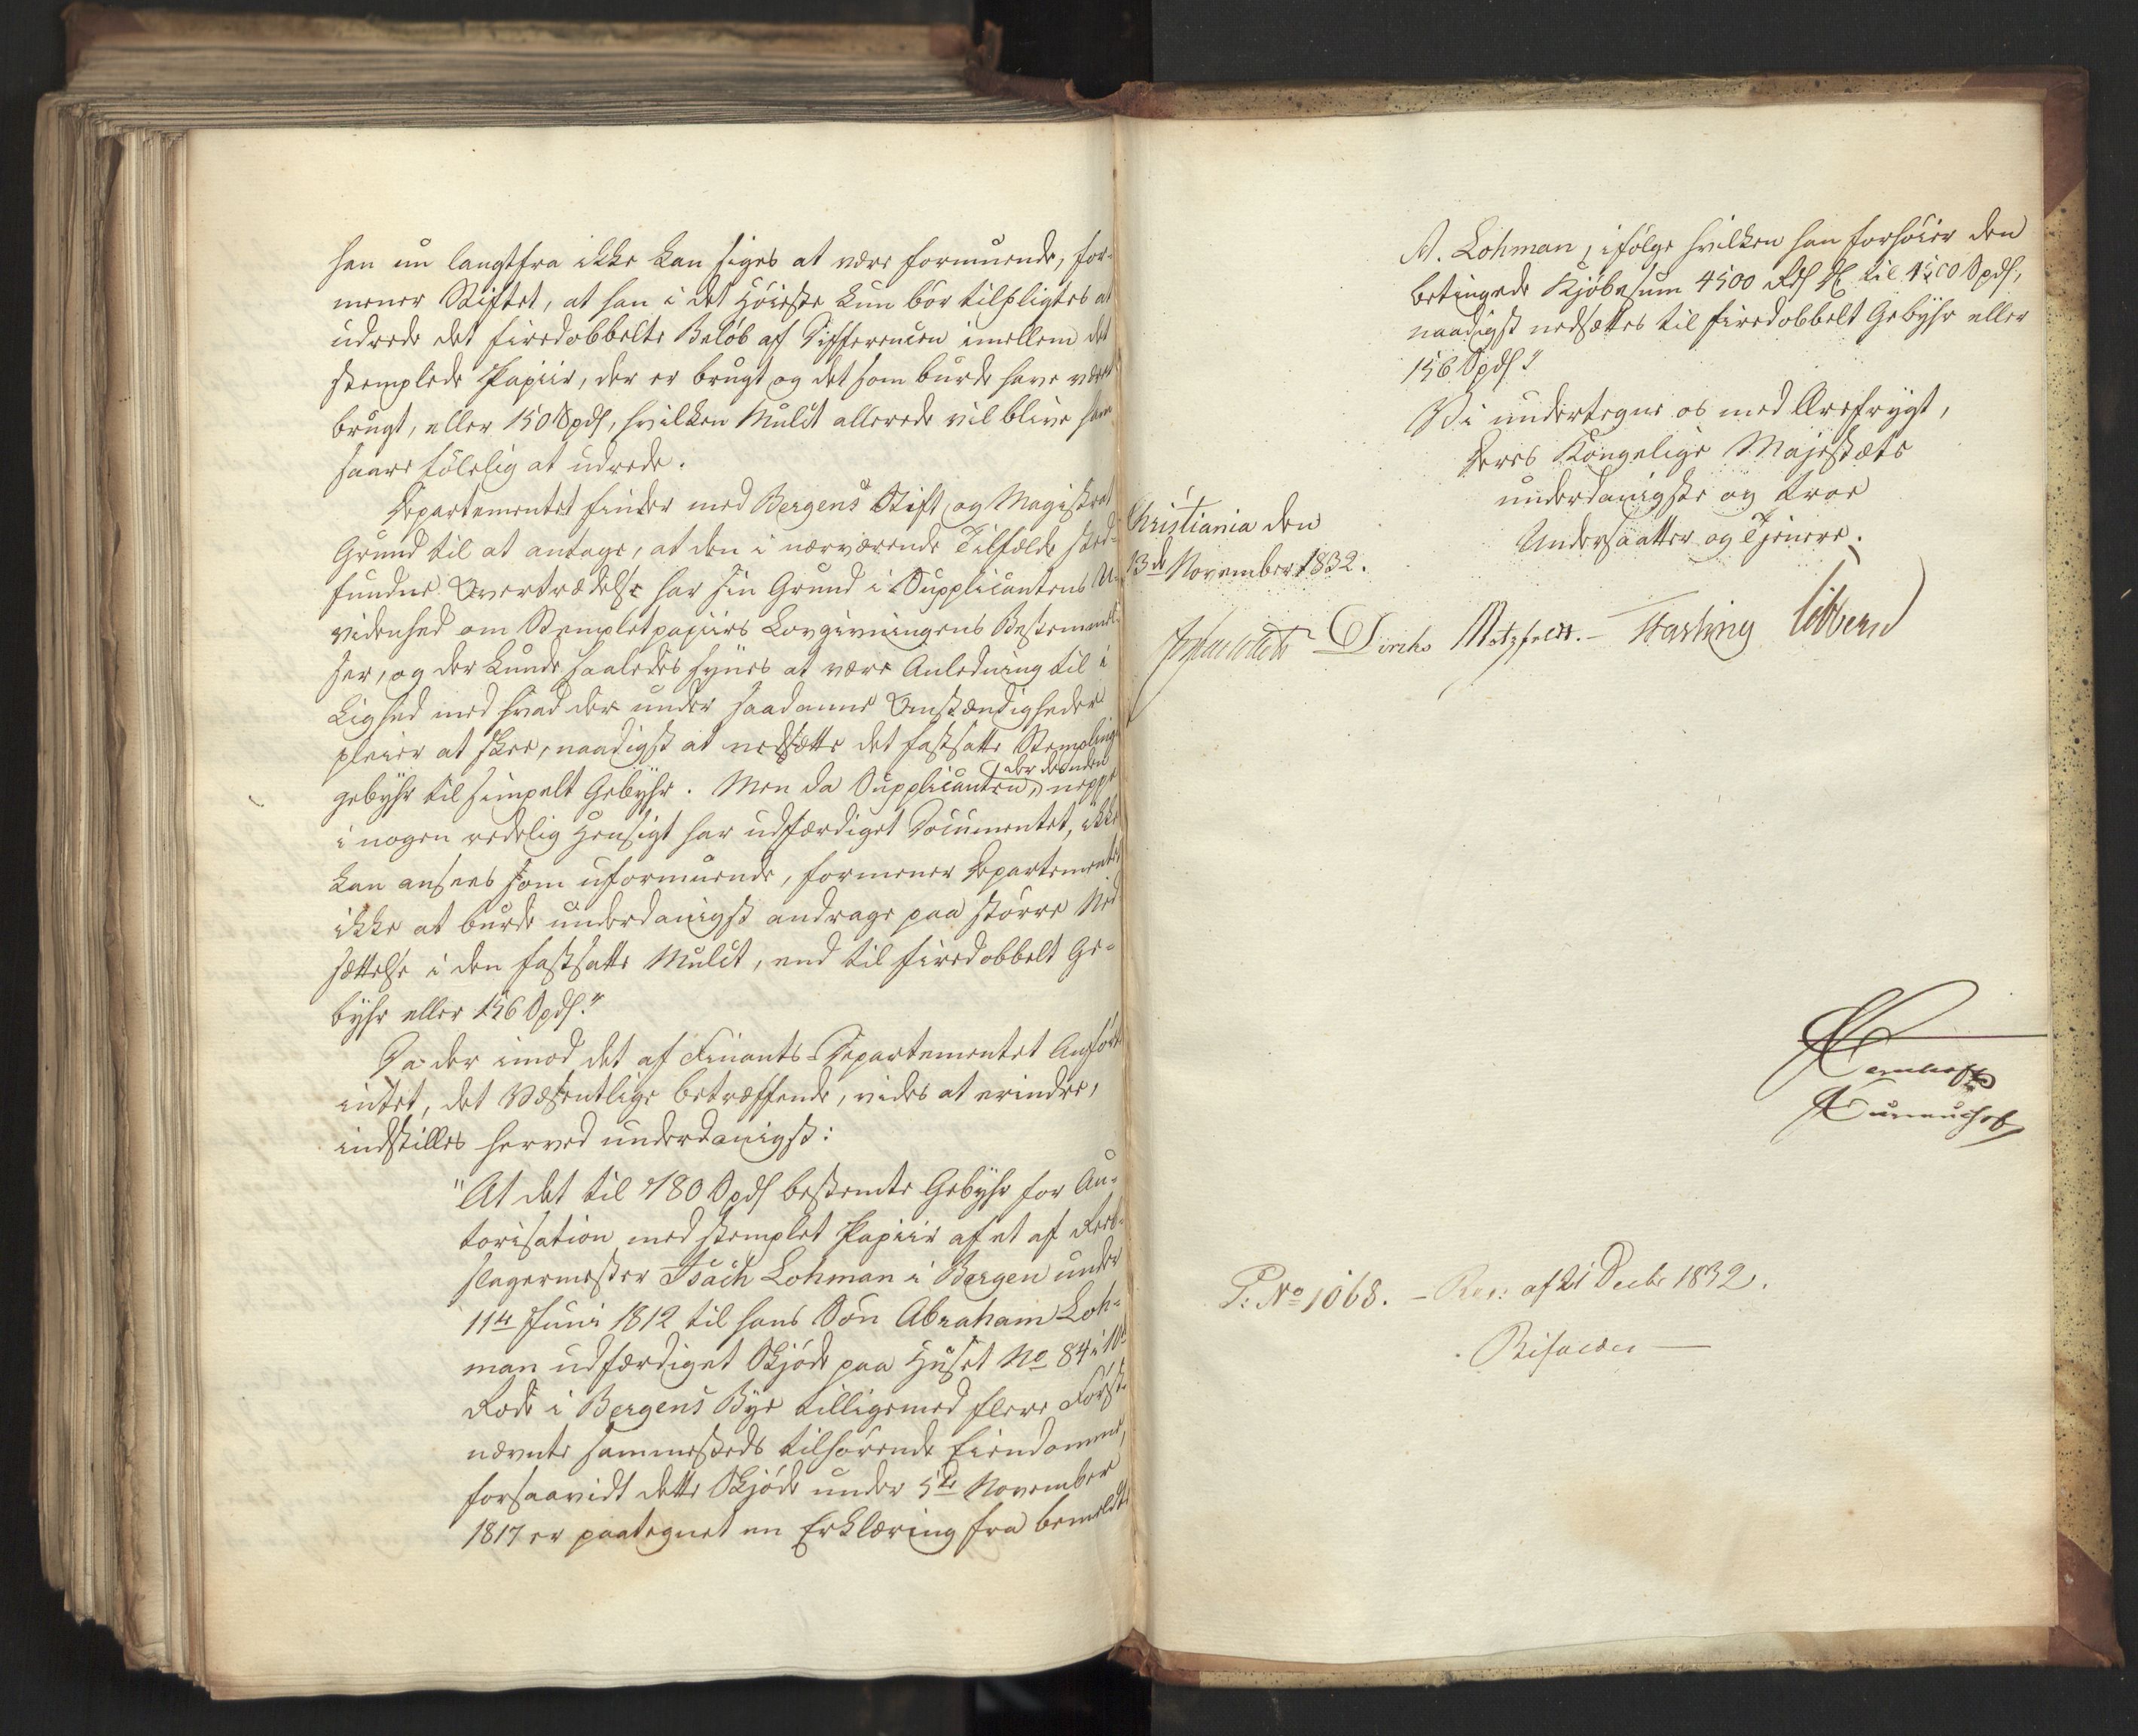 han nu langtfra ikke kan siges at være formuende, for-
mener Stiftet, at han i det Høieste kun bør tilpligtes at
udrede det firedobbelte Beløb af Differencen imellem det
stemplede Papiir, der er brugt og det som burde have været
brugt, eller 150 Spdl, hvilken Mulct allerede vil blive ham
saare følelig at udrede.
Departementet finder med Bergens Stift og Magistrat
Grund til at antage, at den i nærværende Tilfælde sted-
fundne Overtrædelse har sin Grund i Supplicantens U-
videnhed om Stempletpapiirs Lovgivningens Bestemmel-
ser, og der kunde saaledes synes at være Anledning til i
Lighed med hvad der under saadanne Omstændigheder
pleier at skee, naadigst at nedsætte det fastsatte Stemplings
gebyhr til simpelt Gebyhr. Men da Supplicanten, der desuden neppe
i nogen redelig Hensigt har udfærdiget Documentet, ikke
kan ansees som uformuende, formener Departementet
ikke at burde underdanigst andrage paa større Ned-
sættelse i den fastsatte Mulct, end til firedobbelt Ge-
byhr eller 156 Spdl."
Da der imod det af Finants-Departementet Anførte
intet, det Væsentlige betræffende, vides at erindre,
indstilles herved underdanigst:
"At det til 780 Spdl bestemte Gebyhr for Au-
torisation med stemplet Papiir af et af Reeb-
slagermester Isach Lohman i Bergen under
11te Juni 1812 til hans Søn Abraham Loh-
man udfærdiget Skjøde paa Huset No 84 i 10de
Rode i Bergens Bye tilligemed flere Først-
nævnte sammesteds tilhørende Eiendomme,
forsaavidt dette Skjøde under 5te November
1817 er paategnet en Erklæring fra bemeldte
A. Lohman, ifølge hvilken han forhøier den
betingede Kjøbesum 4500 Rd til 1500 Spdl,
naadigst nedsættes til firedobbelt Gebyhr eller
156 Spdl."
Vi undertegne os med Ærefrygt,
Deres Kongelige Majestæts
underdanigste og troe
Undersaatter og Tjenere.
Christiania den
13de November 1832.
Collett Diriks Motzfeldt.- Fasting Sibbern
P: No 1068. - Res: af 21 Decbr 1832.
Bifaldes —